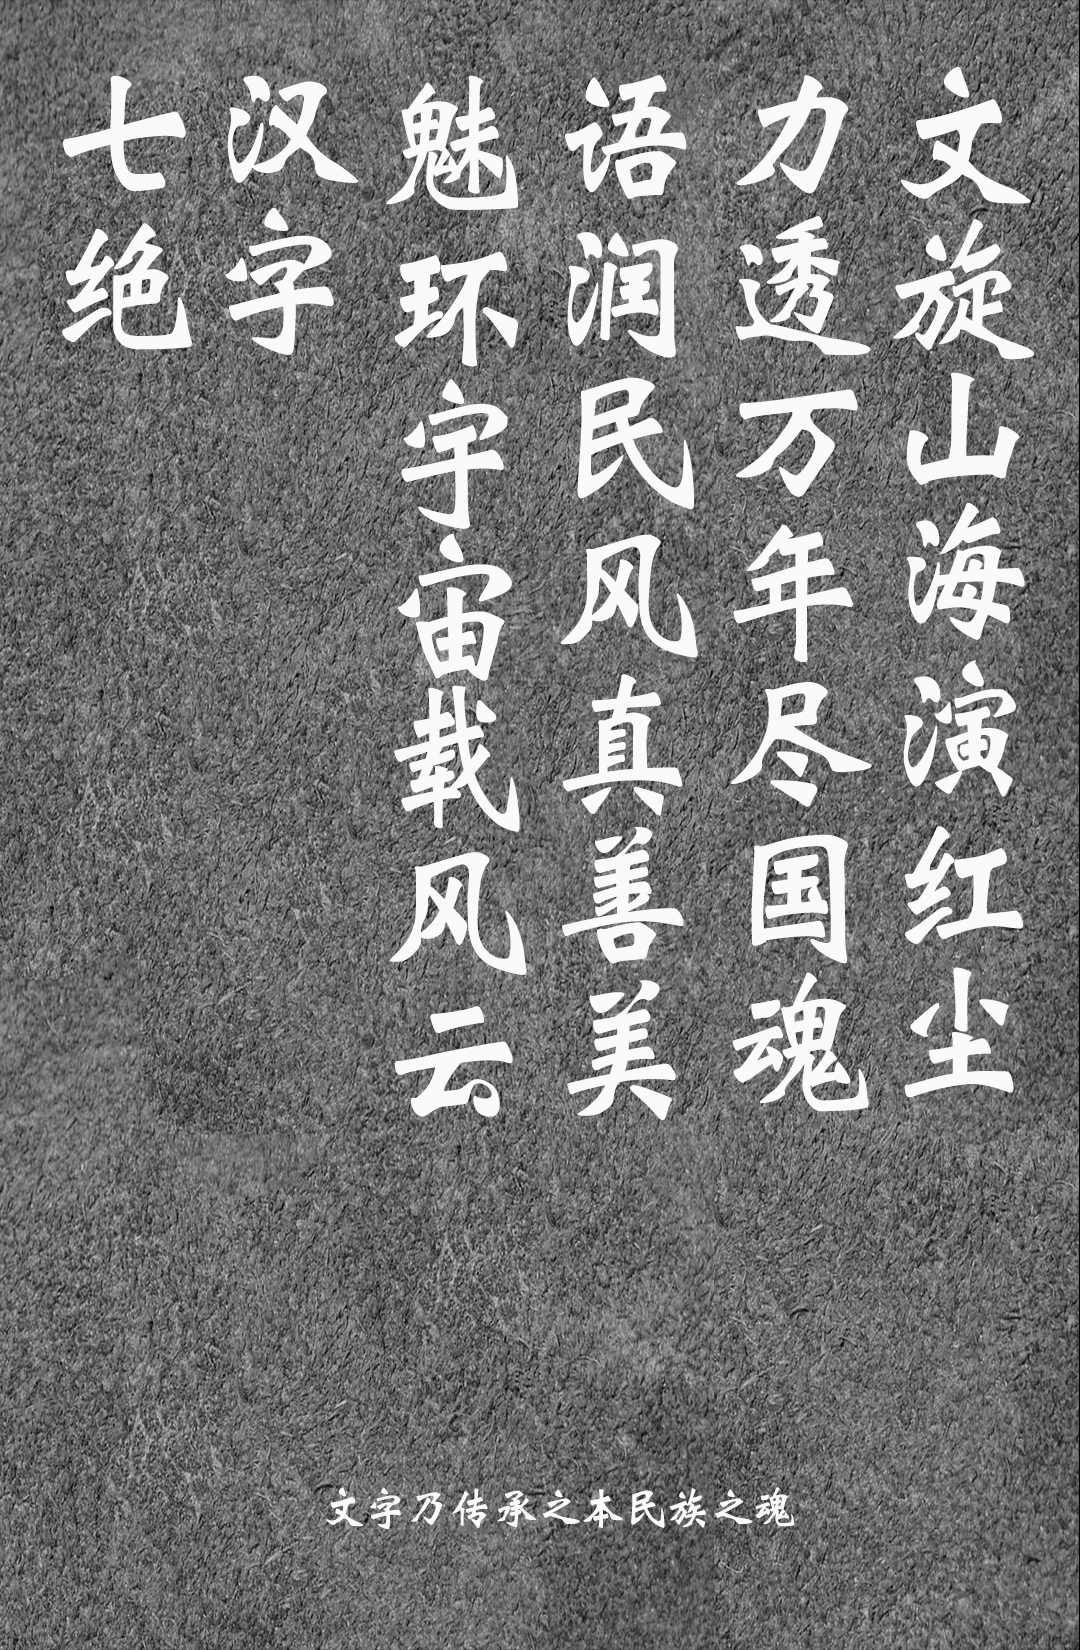 文旋山海演红尘
力透万年尽国魂
语润民风真善美
魅环宇宙载风云
汉字
七绝
文字乃传承之本民族之魂